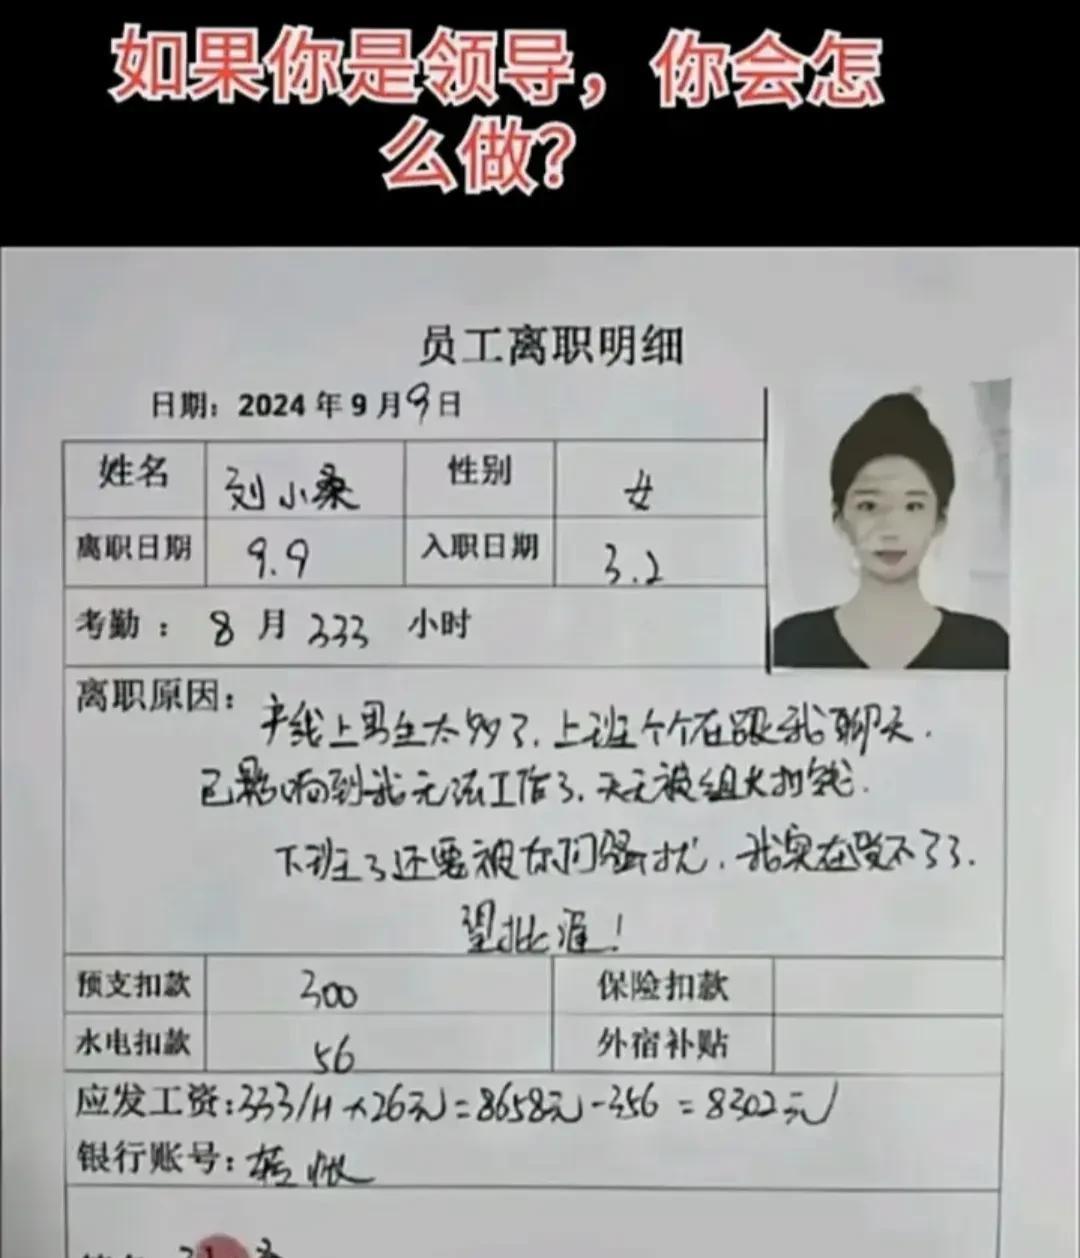 如果你是领导，你会怎
么做？
员工离职明细
日期：2024 年 9 月 9 日
姓名 刘小桑 性别 女
离职日期 9.9 入职日期 3.2
考勤 ： 8 月 333 小时
离职原因：产线上男生太多了，上班个个在跟我聊天．
已影响到我无法工作了．天天被组长扣钱．
下班了还要被他们骚扰．我实在受不了了．
望批准！
预支扣款 300 保险扣款
水电扣款 56 外宿补贴
应发工资：333/H×26元=8658元-356=8302元
银行账号：转帐